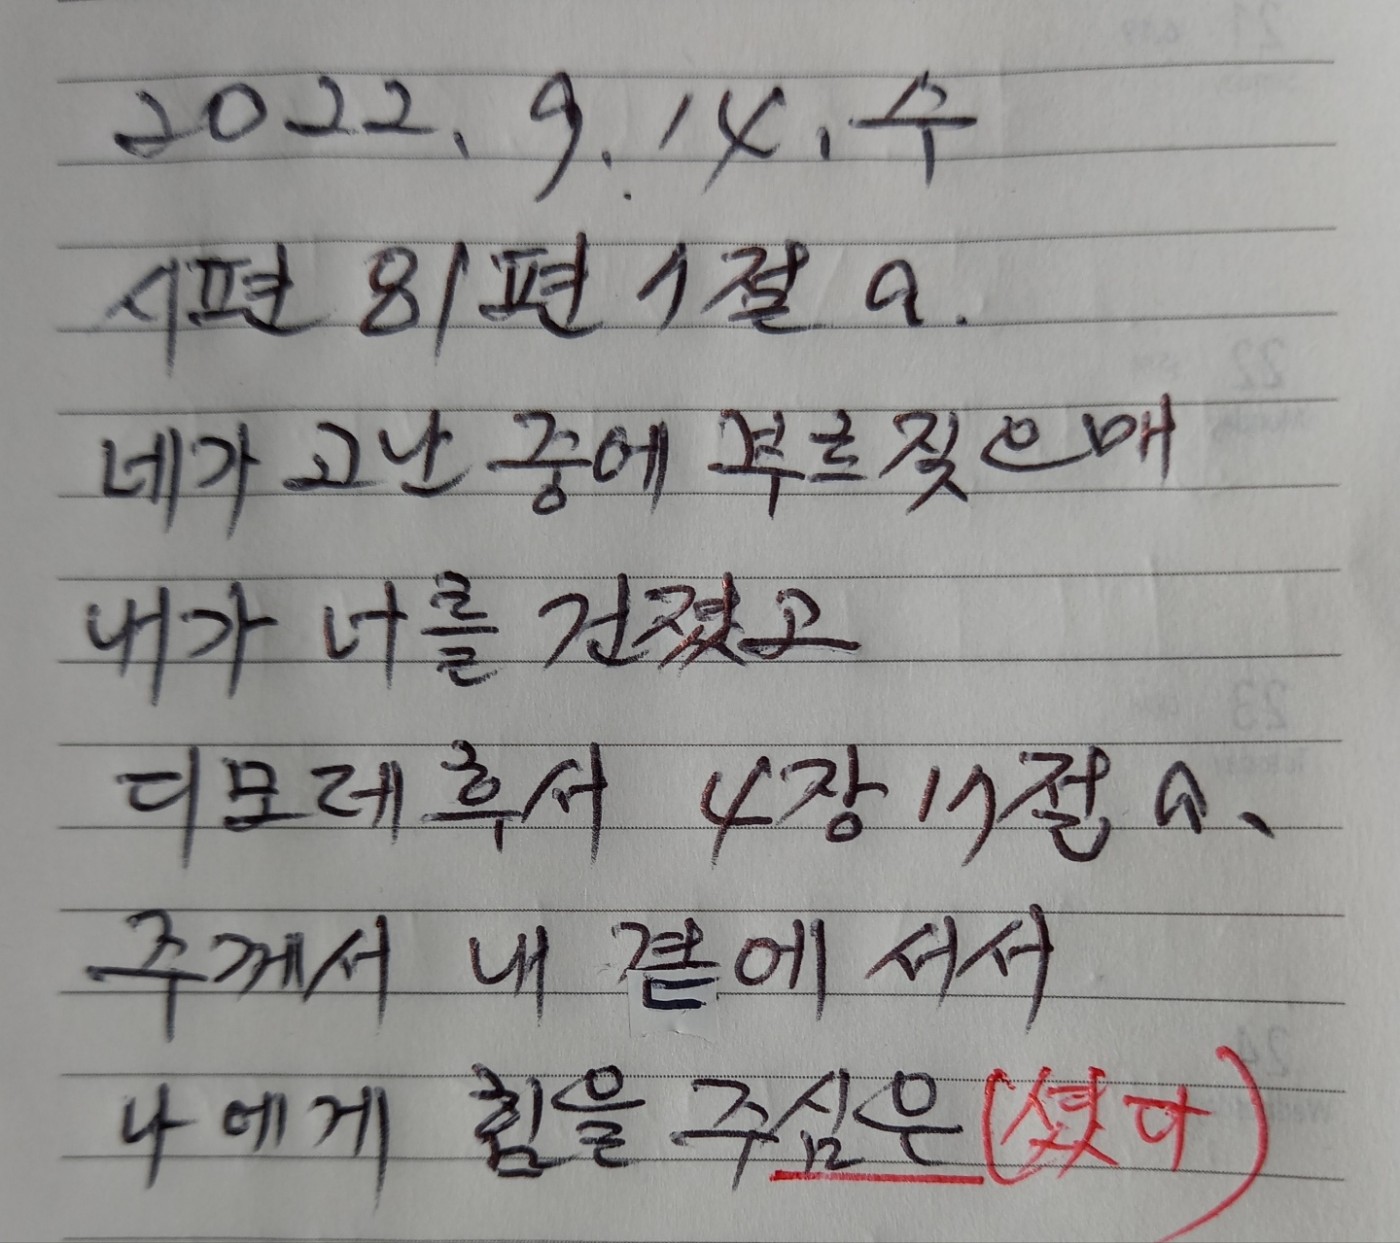 2022. 9. 14. 수
시편 81편 7절 a.
네가 고난 중에 부르짖으매
내가 너를 건졌고
디모데후서 4장 17절 a.
주께서 내 곁에 서서
나에게 힘을 주심은 (셨다)